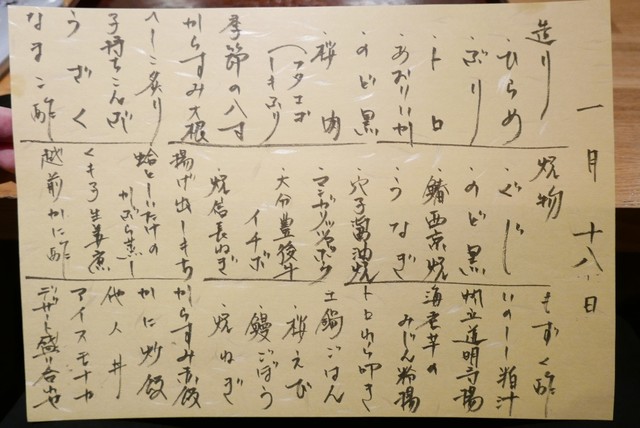 一月十八日
造り
・ひらめ
・ぶり
・トロ
・あおりいか
・のど黒
・桜肉
(フタエゴ
季節の八寸
からすみ大根
へしこ炙り
子持ちこんぶ
うざく
なまこ酢
焼物
・ぐじ
・のど黒
・鰆西京焼
・うなぎ
・穴子醤油焼
・マンガリッツァ
・大分豊後牛
イチボ
・焼信長ねぎ
揚げ出しもち
蛤としいたけの
かぶら蒸し
くも子生姜煮
越前かに酢
もずく酢
いのしし粕汁
帆立道明寺揚
海老芋の
みじん粉揚
トロわら叩き
土鍋ごはん
・桜えび
・鰻ごぼう
・焼ねぎ
からすみ赤飯
かに炒飯
他人丼
アイスモナカ
デザート盛り合わせ